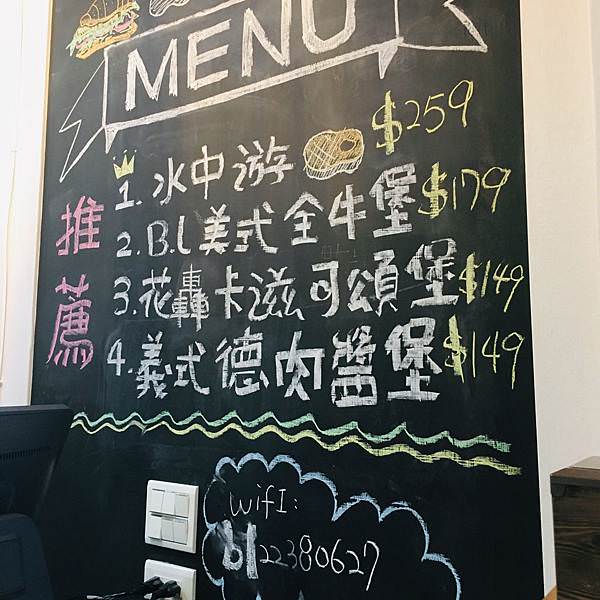 MENU
推薦
1. 水中游 $259
2. B.L美式全牛堡 $179
3. 花轟卡滋可頌堡 $149
4. 義式德肉醬堡 $149
wifI:
0122380627